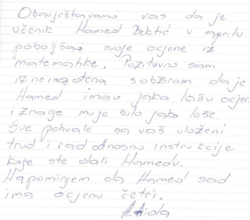 Obavještavamo vas da je
učenik Hamed Deltić u aprilu
poboljšao svoje ocjene iz
matematike. Pozitivno sam
iznenađena s obzirom da je
Hamed imao jako lošu ocjenu
i znanje mu je bilo jako loše.
Sve pohvale na vaš uloženi
trud i rad odnosno instrukcije
koje ste dali Hamedu.
Napominjem da Hamed sad
ima ocjenu četri.
A. Aida